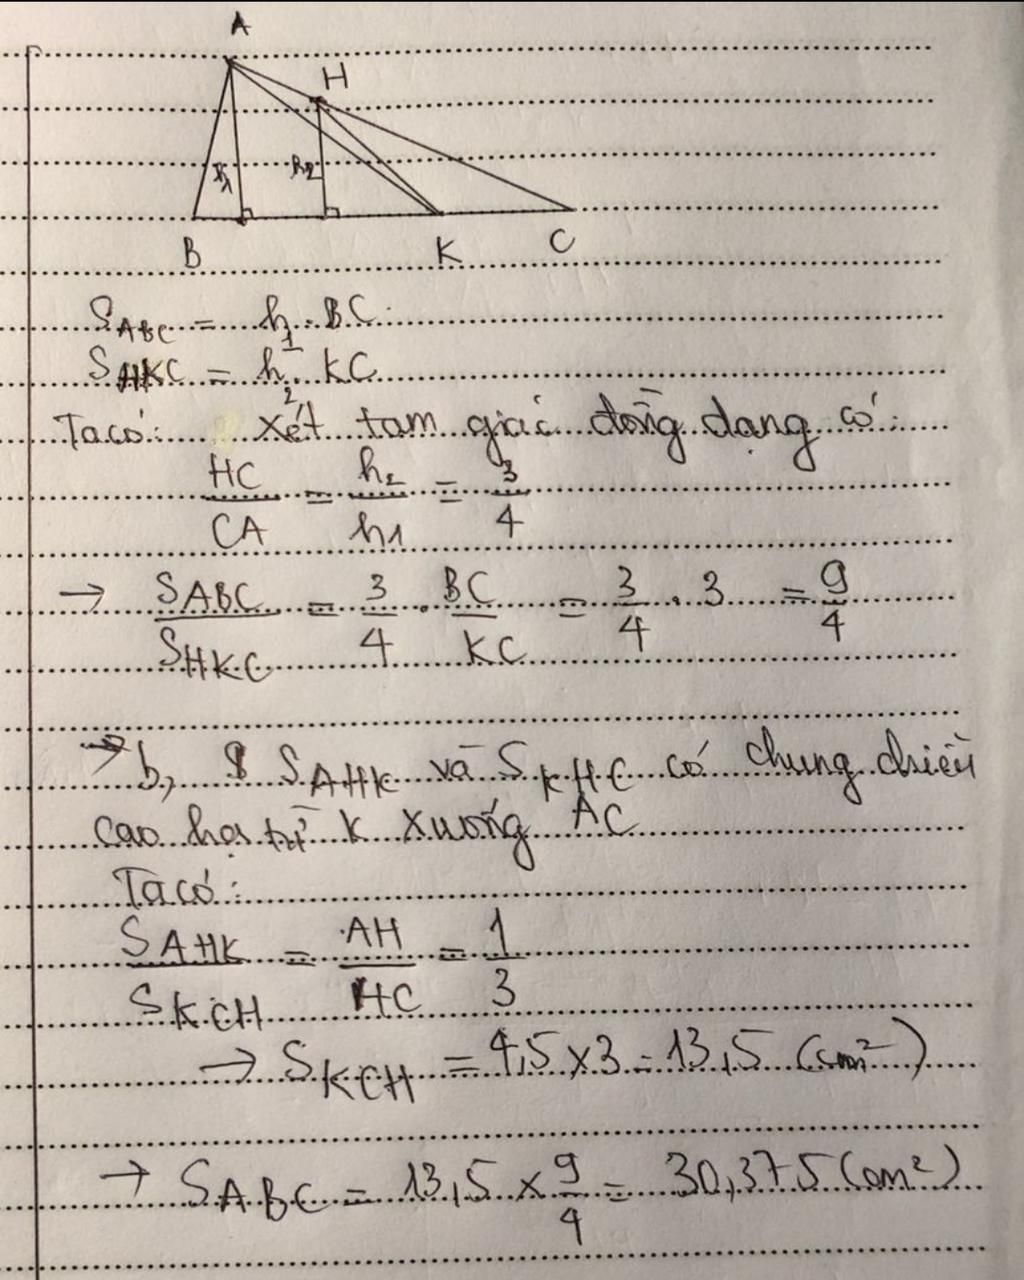 A
H
h1 h2
B K C
S ABC = h1 . BC
S HKC = h2 . KC
Ta có: xét tam giác đồng dạng có:
HC/CA = h2/h1 = 3/4
→ S ABC / S HKC = 3/4 . BC/KC = 3/4 . 3 = 9/4
→ b, S AHK và S KHC có chung chiều
cao hạ từ K xuống AC
Ta có:
S AHK / S KCH = AH/HC = 1/3
→ S KCH = 4,5 x 3 = 13,5 (cm²)
→ S ABC = 13,5 x 9/4 = 30,375 (cm²)